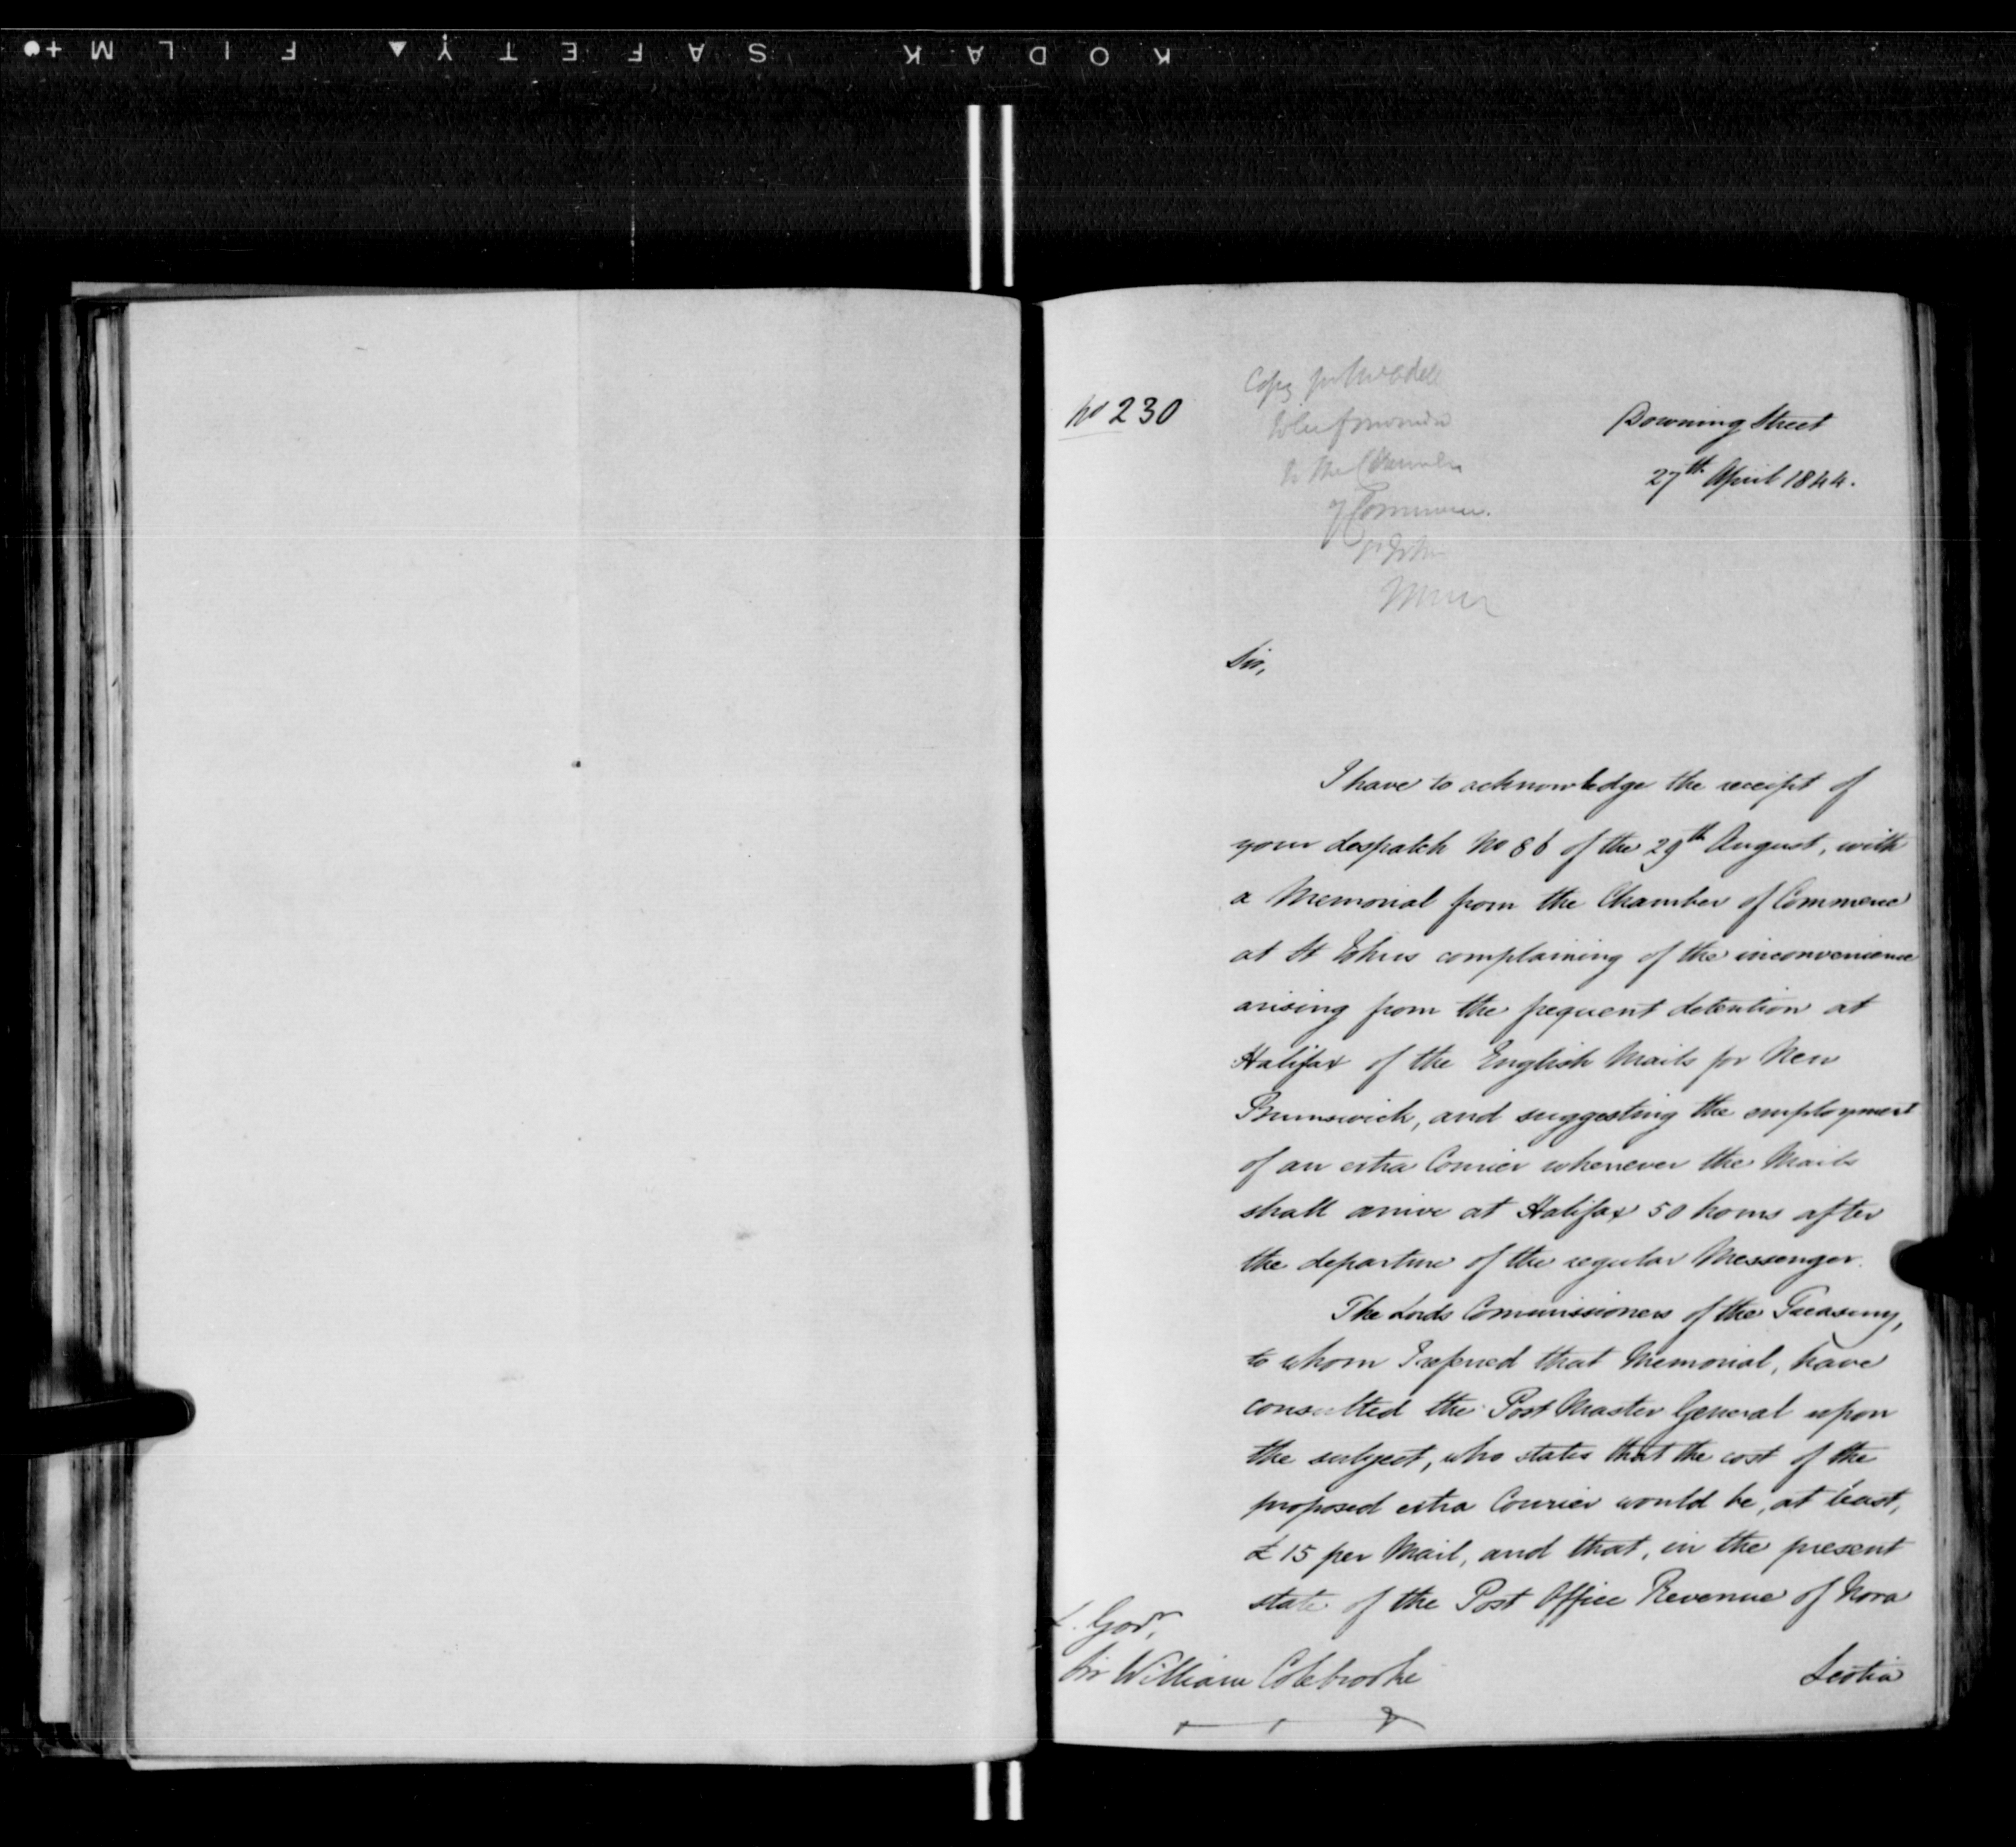 KODAK SAFETY FILM
No 230
Copy
to the Chamber
of Commerce
St John
Downing Street
27th April 1844.
Sir,
I have to acknowledge the receipt of
your despatch No 86 of the 29th August, with
a Memorial from the Chamber of Commerce
at St Johns complaining of the inconvenience
arising from the frequent detention at
Halifax of the English Mails for New
Brunswick, and suggesting the employment
of an extra Courier whenever the Mails
shall arrive at Halifax 50 hours after
the departure of the regular Messenger.
The Lords Commissioners of the Treasury,
to whom I referred that Memorial, have
consulted the Post Master General upon
the subject, who states that the cost of the
proposed extra Courier would be, at least,
£15 per Mail, and that, in the present
state of the Post Office Revenue of Nova
Scotia
L. Govr.
Sir William Colebrooke